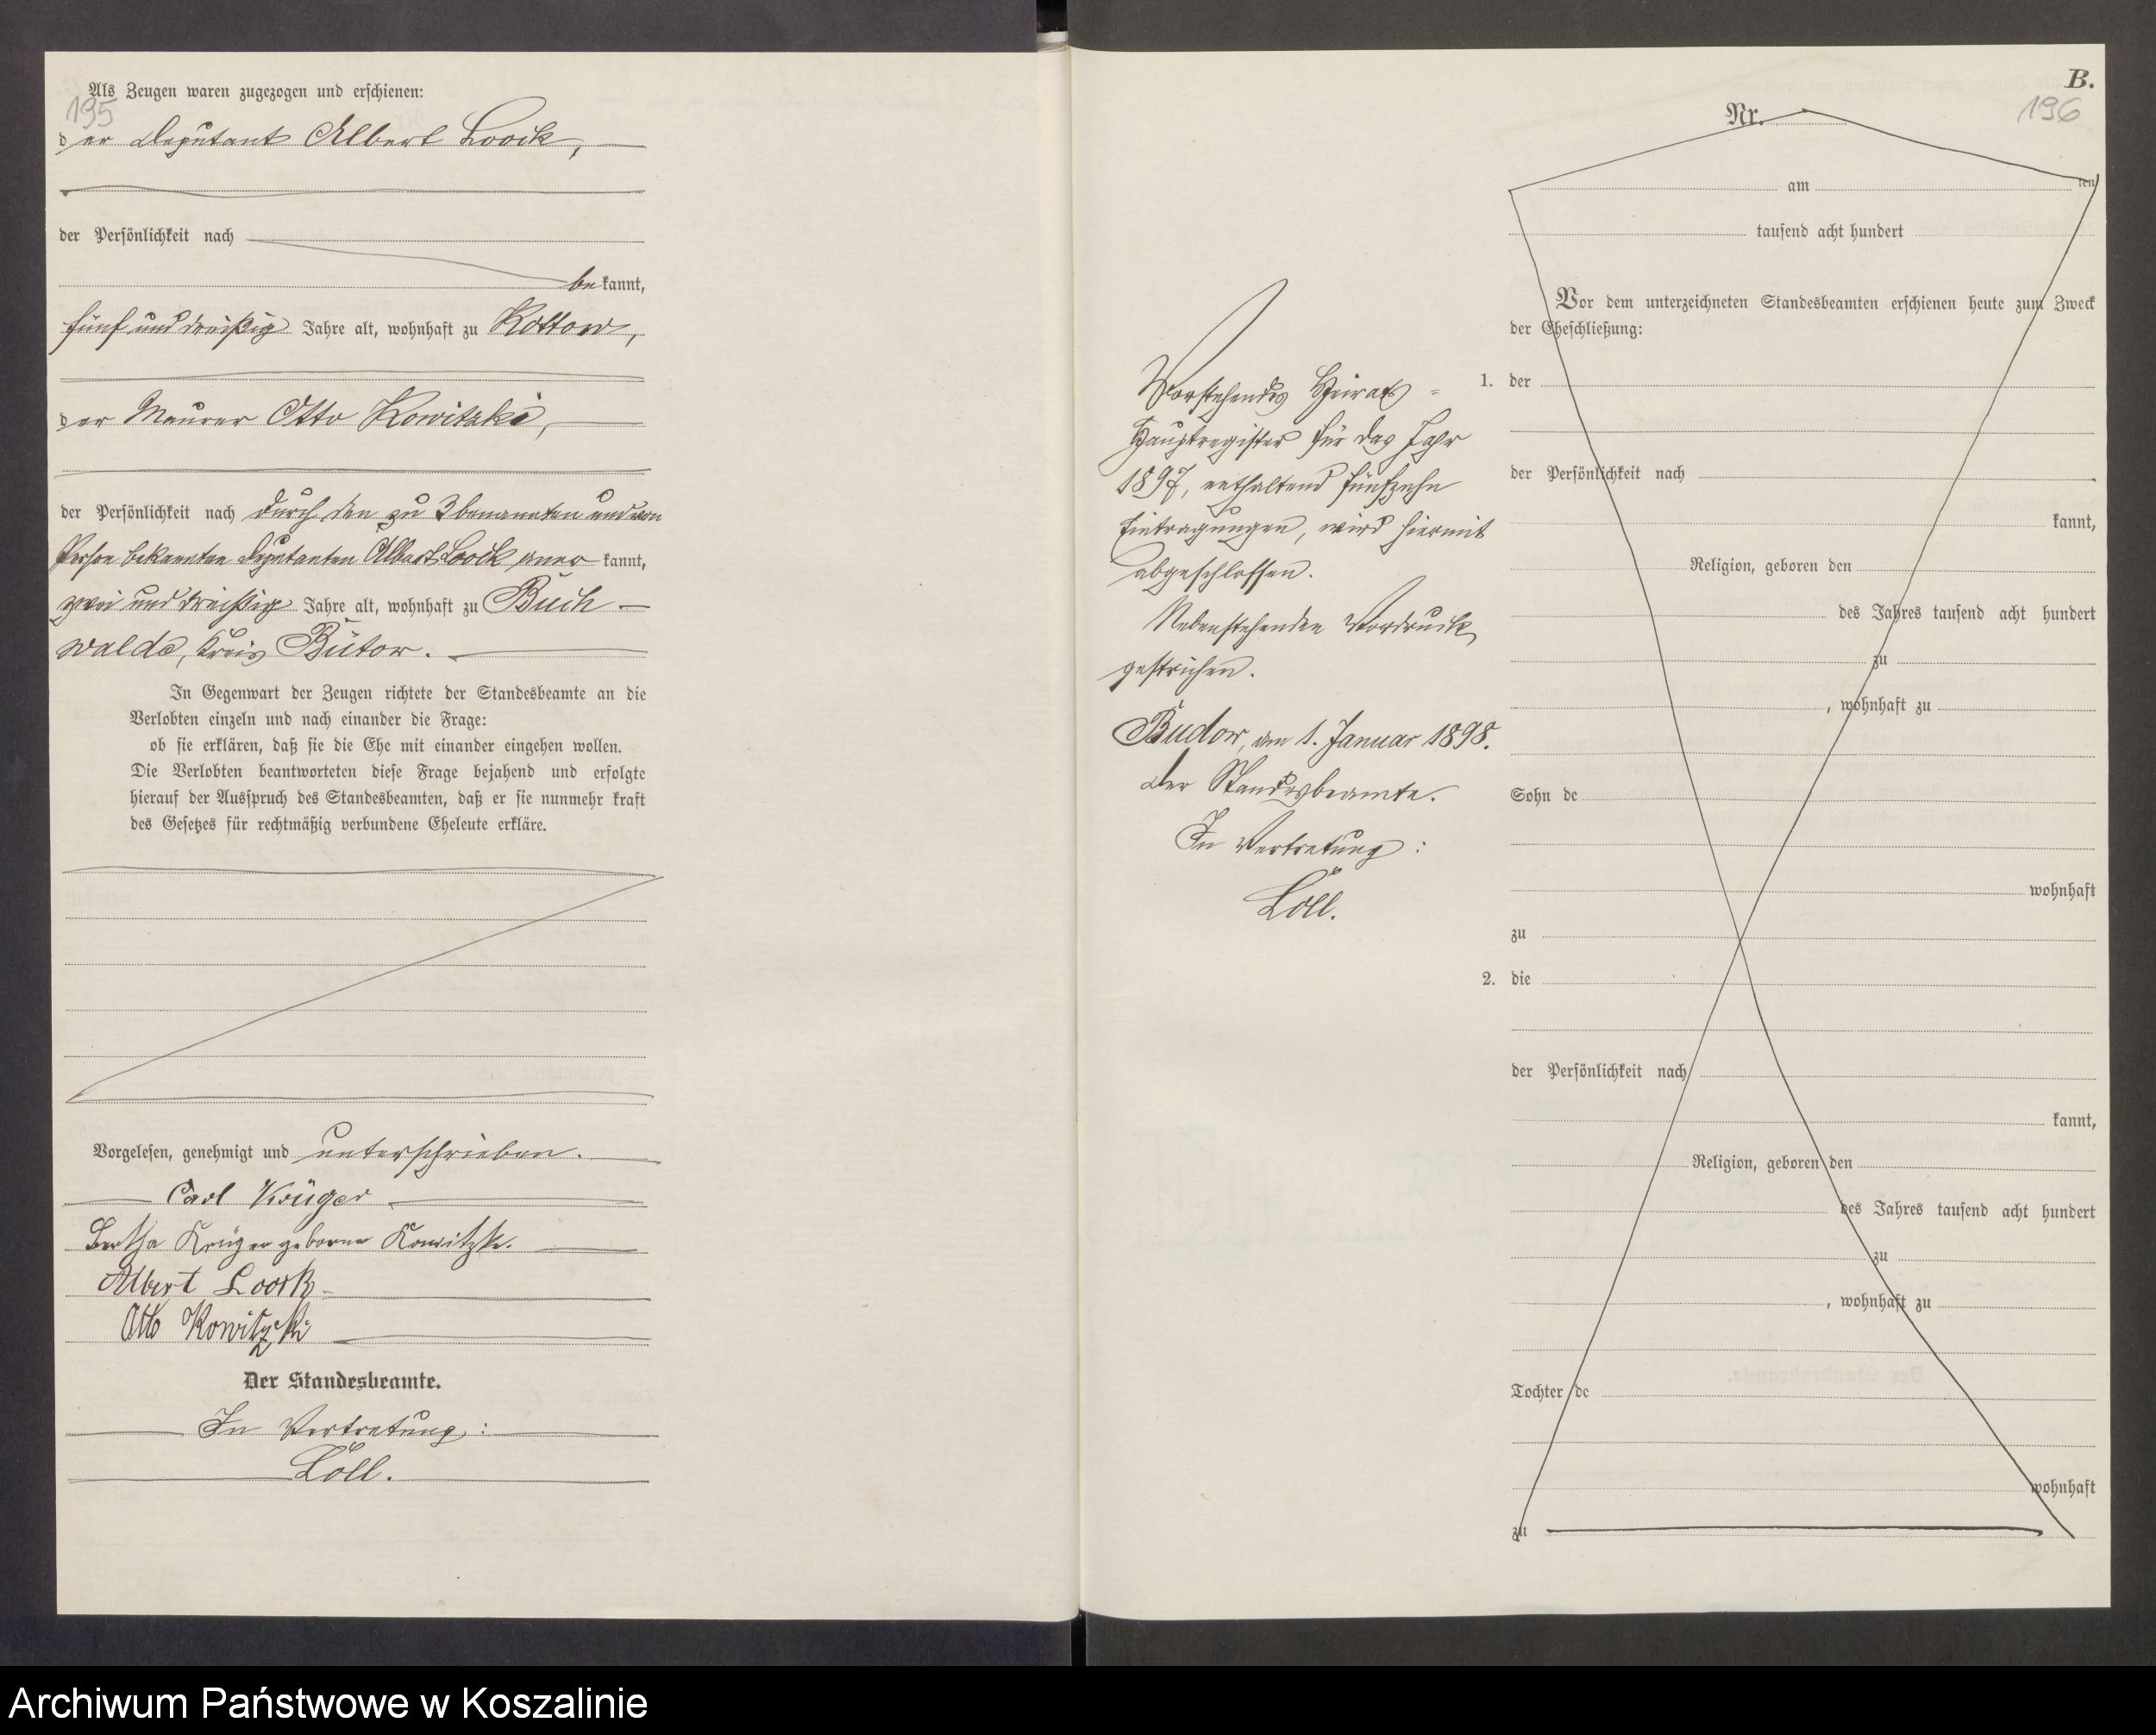 Als Zeugen waren zugezogen und erschienen:
195
der Deputant Albert Loock,
der Persönlichkeit nach
bekannt,
fünf und dreißig Jahre alt, wohnhaft zu Kottow,
der Maurer Otto Kowitzki,
der Persönlichkeit nach durch den zu 3 benannten und von
Person bekannten Deputanten Albert Loock aner kannt,
zwei und dreißig Jahre alt, wohnhaft zu Buch-
walde, Kreis Bütow.
In Gegenwart der Zeugen richtete der Standesbeamte an die
Verlobten einzeln und nach einander die Frage:
ob sie erklären, daß sie die Ehe mit einander eingehen wollen.
Die Verlobten beantworteten diese Frage bejahend und erfolgte
hierauf der Ausspruch des Standesbeamten, daß er sie nunmehr kraft
des Gesetzes für rechtmäßig verbundene Eheleute erkläre.
Vorgelesen, genehmigt und unterschrieben.
Carl Krüger
Bertha Krüger geborne Kowitzki.
Albert Loock
Otto Kowitzki
Der Standesbeamte.
In Vertretung:
Löll.
Vorstehendes Heirats-
Hauptregister für das Jahr
1897, enthaltend fünfzehn
Eintragungen, wird hiermit
abgeschlossen.
Nebenstehenden Vordruck
gestrichen.
Budow, am 1. Januar 1898.
Der Standesbeamte.
In Vertretung:
Löll.
B.
Nr. 196
am ten
tausend acht hundert
Vor dem unterzeichneten Standesbeamten erschienen heute zum Zweck
der Eheschließung:
1. der
der Persönlichkeit nach
kannt,
Religion, geboren den
des Jahres tausend acht hundert
zu
, wohnhaft zu
Sohn de
wohnhaft
zu
2. die
der Persönlichkeit nach
kannt,
Religion, geboren den
des Jahres tausend acht hundert
zu
, wohnhaft zu
Tochter de
wohnhaft
zu
Archiwum Państwowe w Koszalinie